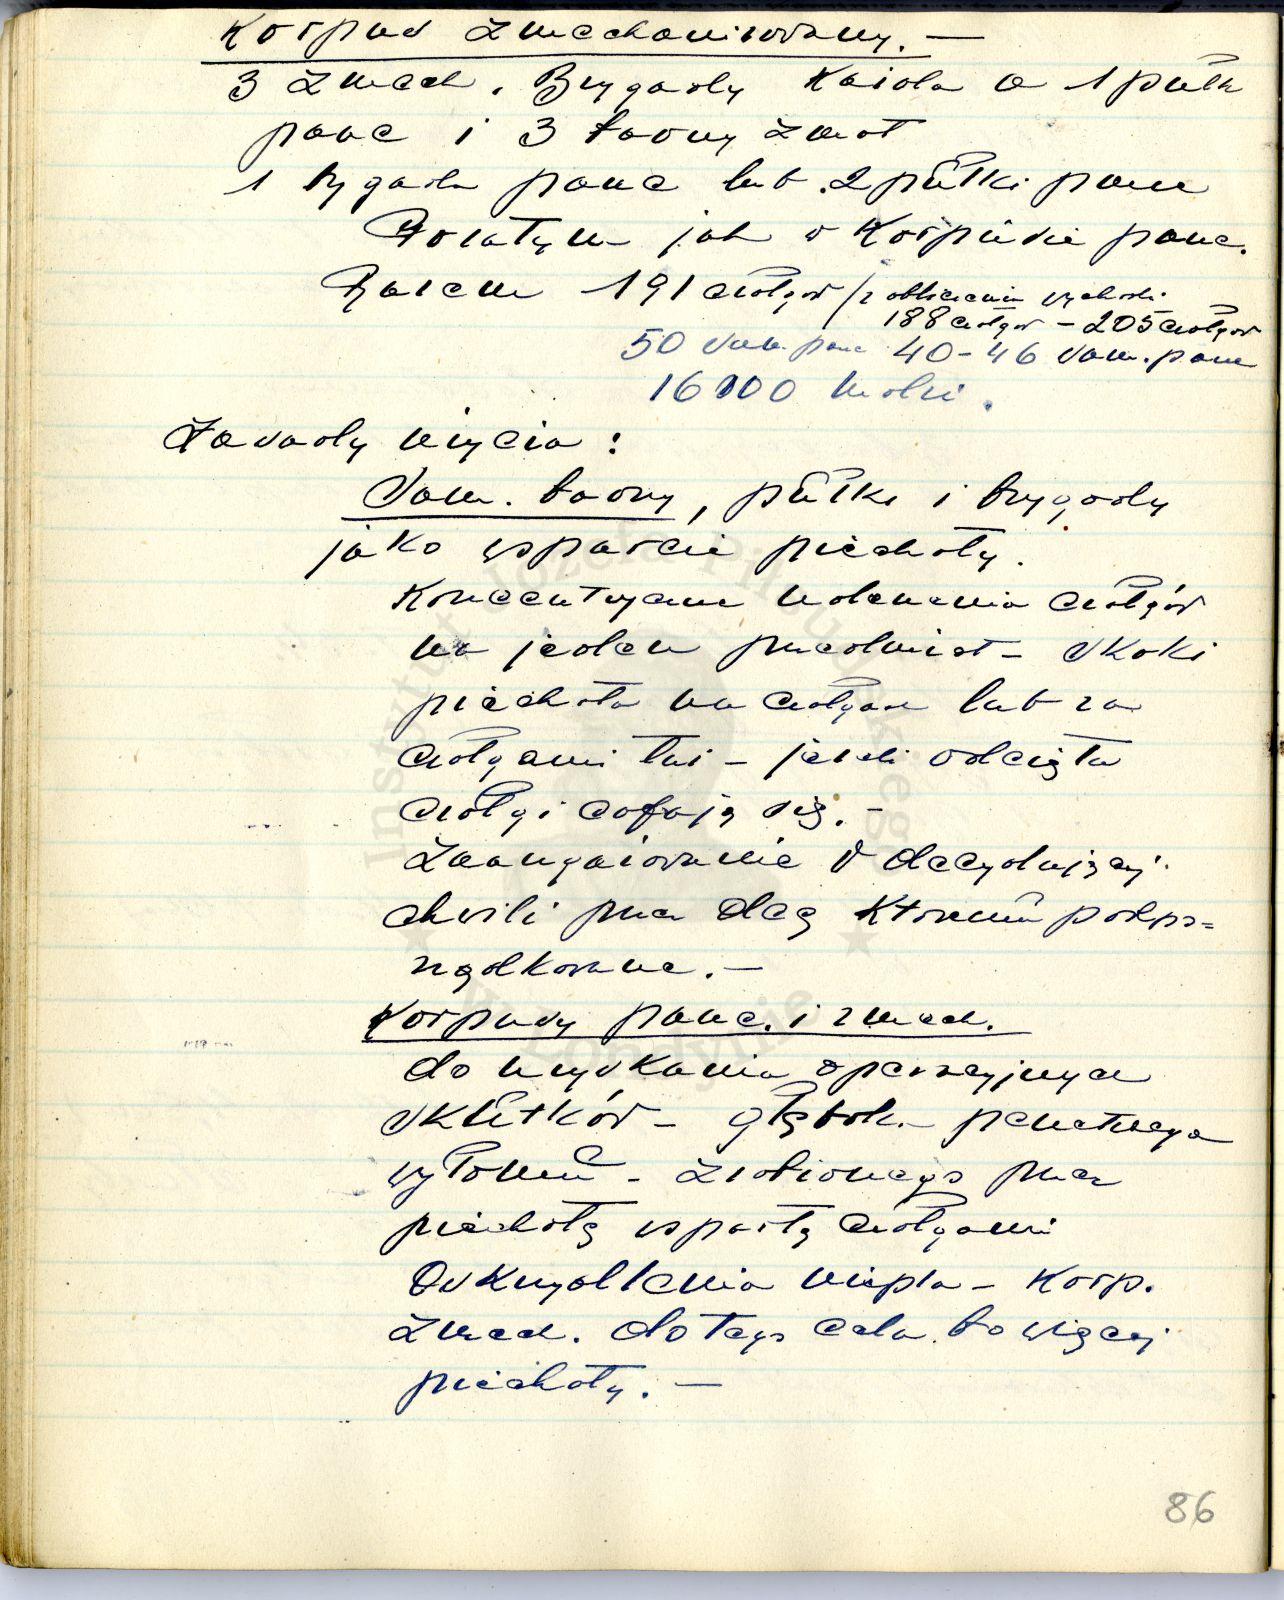 Korpus zmechanizowany. —
3 zmech. Brygady Każda o 1 pułk
panc i 3 baony zmot
1 brygada panc lub 2 pułki panc
Pozatym jak w Korpusie panc.
Razem 191 czołgów / z obliczenia wychodzi
188 czołgów – 205 czołgów
50 sam. panc 40–46 sam. panc
16000 ludzi.
Zasady użycia:
Sam. baony, pułki i brygady
jako wsparcie piechoty.
Koncentryczne uderzenia czołgów
na jeden przedmiot – skoki
piechota na czołgach lub za
czołgami tuż – jeżeli odcięta
czołgi cofają się. –
Zaangażowanie w decydującej
chwili przez dcę któremu podpo=
rządkowane. –
Korpusy panc. i zmech.
do uzyskania operacyjnych
skutków – głębok. penetracja
wyłomu – zrobionego przez
piechotę wspartą czołgami
Oskrzydlenia niepla – Korp.
zmech. do tego celu bo więcej
piechoty. –
86
Instytut Józefa Piłsudskiego
w Londynie